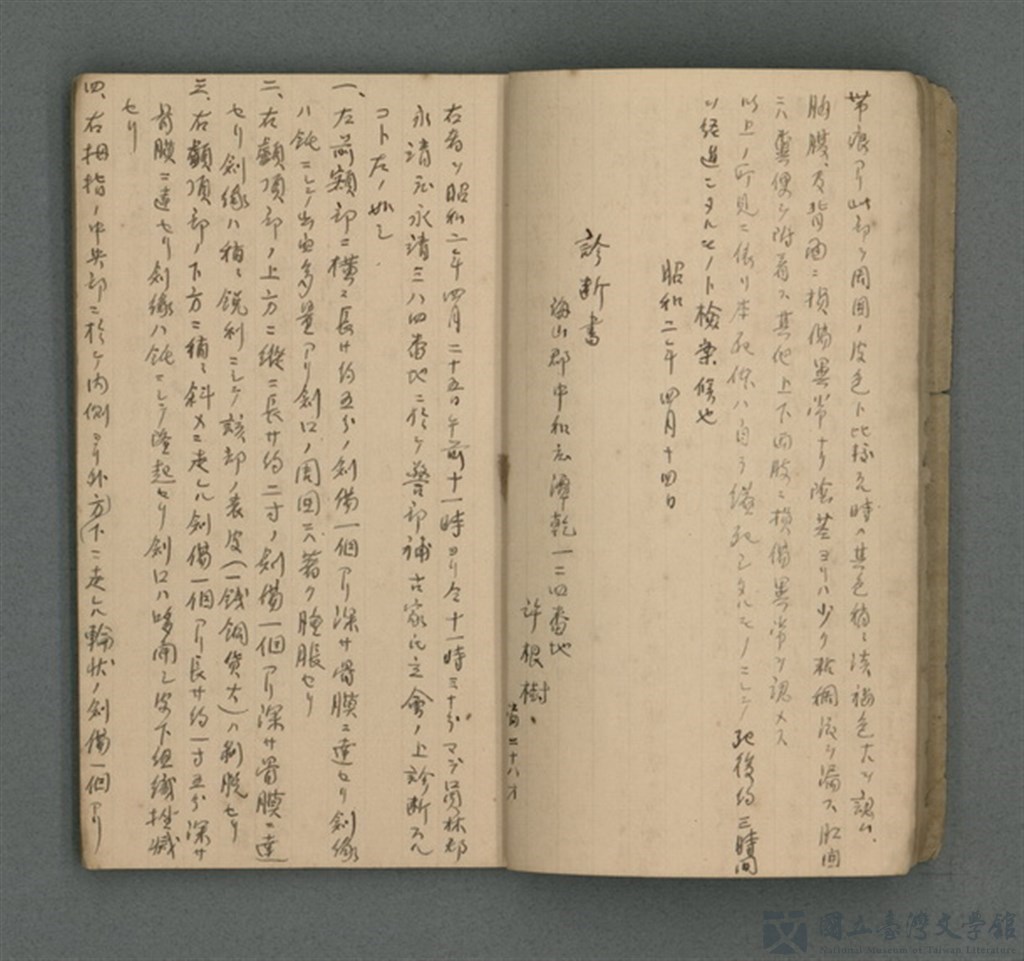 帯痕アリ此部ヲ周囲ノ皮色ト比スル時ハ其色稍々淡褐色大ヲ認ム、
胸腹及背面ニ損傷異常ナリ陰茎ヨリハ少ク粘稠液ヲ漏ス肛囲
ニハ糞便ヲ附着ス其他上下四肢ニ損傷異常ヲ認メス
以上ノ所見ニ依リ本死体ハ自ラ縊死シタルモノニシテ死後約三時間
ヲ経過シタルモノト検案候也
昭和二年四月十四日
診断書
海山郡中和庄潭墘一二四番地
許根樹
満二十八才
右者ハ昭和二年四月二十五日午前十一時ヨリ仝十一時三十分マデ員林郡
永靖庄永靖三八四番地ニ於テ警部補古家氏立會ノ上診断スル
コト左ノ如シ
一、左前額部ニ横ニ長サ約五分ノ創傷一個アリ深サ骨膜ニ達セリ創縁
ハ鈍ニシテ出血多量アリ創口ノ周囲ハ著ク腫脹セリ
二、右顱頂部ノ上方ニ縦ニ長サ約二寸ノ創傷一個アリ深サ骨膜ニ達
セリ創縁ハ稍々鋭利ニシテ該部ノ表皮(一銭銅貨大)ハ剥脱セリ
三、右顱頂部ノ下方ニ稍々斜メニ走ル創傷一個アリ長サ約一寸五分深サ
骨膜ニ達セリ創縁ハ鈍ニシテ隆起セリ創口ハ哆開シ皮下組織挫滅
セリ
四、右拇指ノ中央部ニ於テ内側ヨリ外方(下ニ走ル輪状ノ創傷一個アリ
國立臺灣文學館
National Museum of Taiwan Literature